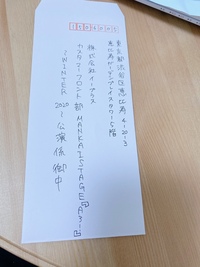 東京都渋谷区恵比寿4-20-3
恵比寿ガーデンプレイスタワー5階
株式会社イープラス
カスタマーフロント部 MANKAI STAGE『A3!』
〜WINTER 2020〜公演係御中